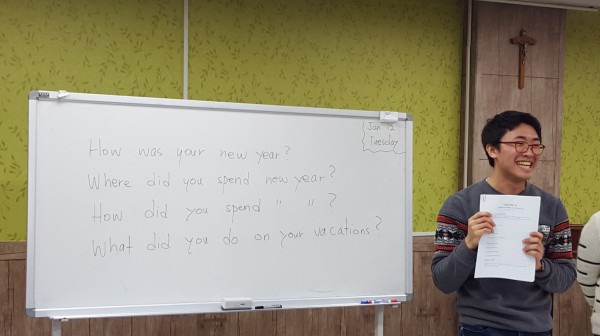 Jan 12
Tuesday
How was your new year?
Where did you spend new year?
How did you spend " " ?
What did you do on your vacations?